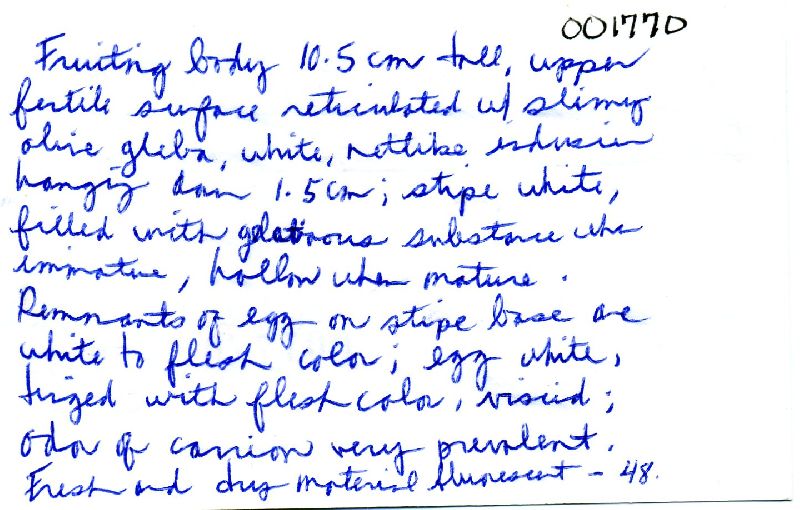 001770
Fruiting body 10.5 cm tall, upper
fertile surface reticulated w/ slimy
olive gleba, white, netlike indusium
hanging down 1.5 cm; stipe white,
filled with gelatinous substance when
immature, hollow when mature.
Remnants of egg on stipe base are
white to flesh color; egg white,
tinged with flesh color, viscid;
odor of carrion very prevalent.
Fresh and dry material fluorescent - 48.